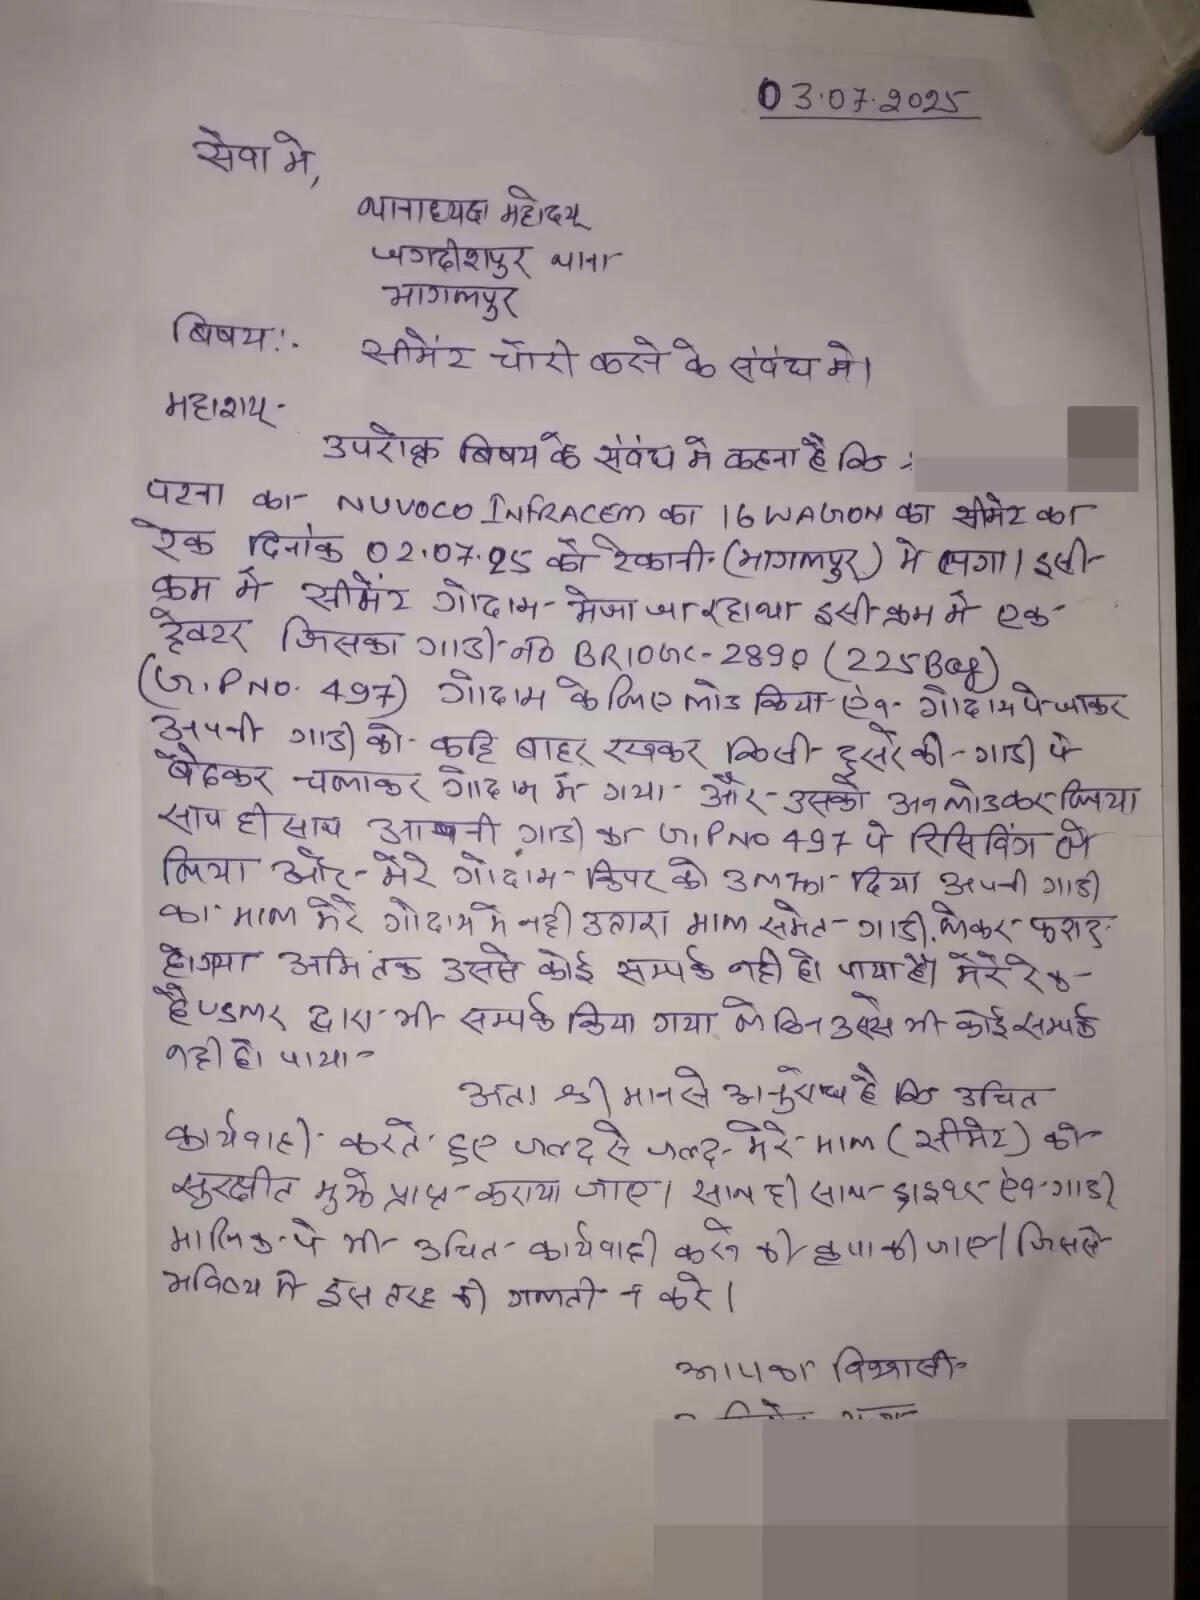 03.07.2025
सेवा मे,
थानाध्यक्ष महोदय्
जगदीशपुर थाना
भागलपुर
बिषय:.
सीमेंट चोरी करने के संबंध मे।
महाशय्-
उपरोक्त बिषय के संबंध मे कहना है कि
पटना का NUVOCO INFRACEM का 16 WAGON का सीमेंट का
रेक दिनांक 02.07.25 को टेकानी (भागलपुर) मे लगा। इसी
क्रम मे सीमेंट गोदाम भेजा जा रहा था इसी क्रम मे एक
ट्रेक्टर जिसका गाडी नं० BR10GC-2890 (225 Bag)
(G.P NO. 497) गोदाम के लिए लोड किया एंव गोदाम पे जाकर
अपनी गाडी को कहि बाहर रखकर किसी दुसरे की गाडी पे
बैठकर चलाकर गोदाम में गया और उसको अनलोड कर लिया
साथ ही साथ अपनी गाडी का G.P NO 497 पे रिसिविंग ले
लिया और मेरे गोदाम किपर को उलझा दिया अपनी गाडी
का माल मेरे गोदाम मे नही उतारा माल समेत गाडी लेकर फरार
हो गया अभि तक उससे कोई सम्पर्क नही हो पाया है। मेरे रेक
हैण्डलर द्वारा भी सम्पर्क किया गया लेकिन उससे भी कोई सम्पर्क
नही हो पाया
अतः श्री मान से अनुरोध है कि उचित
कार्यवाही करते हुए जल्द से जल्द मेरे माल (सीमेंट) को
सुरक्षीत मुझे प्राप्त कराया जाए। साथ ही साथ ड्राइवर एंव गाडी
मालिक पे भी उचित कार्यवाही करने की कृपा की जाए। जिससे
भविष्य मे इस तरह की गलती न करे।
आपका विश्वासी